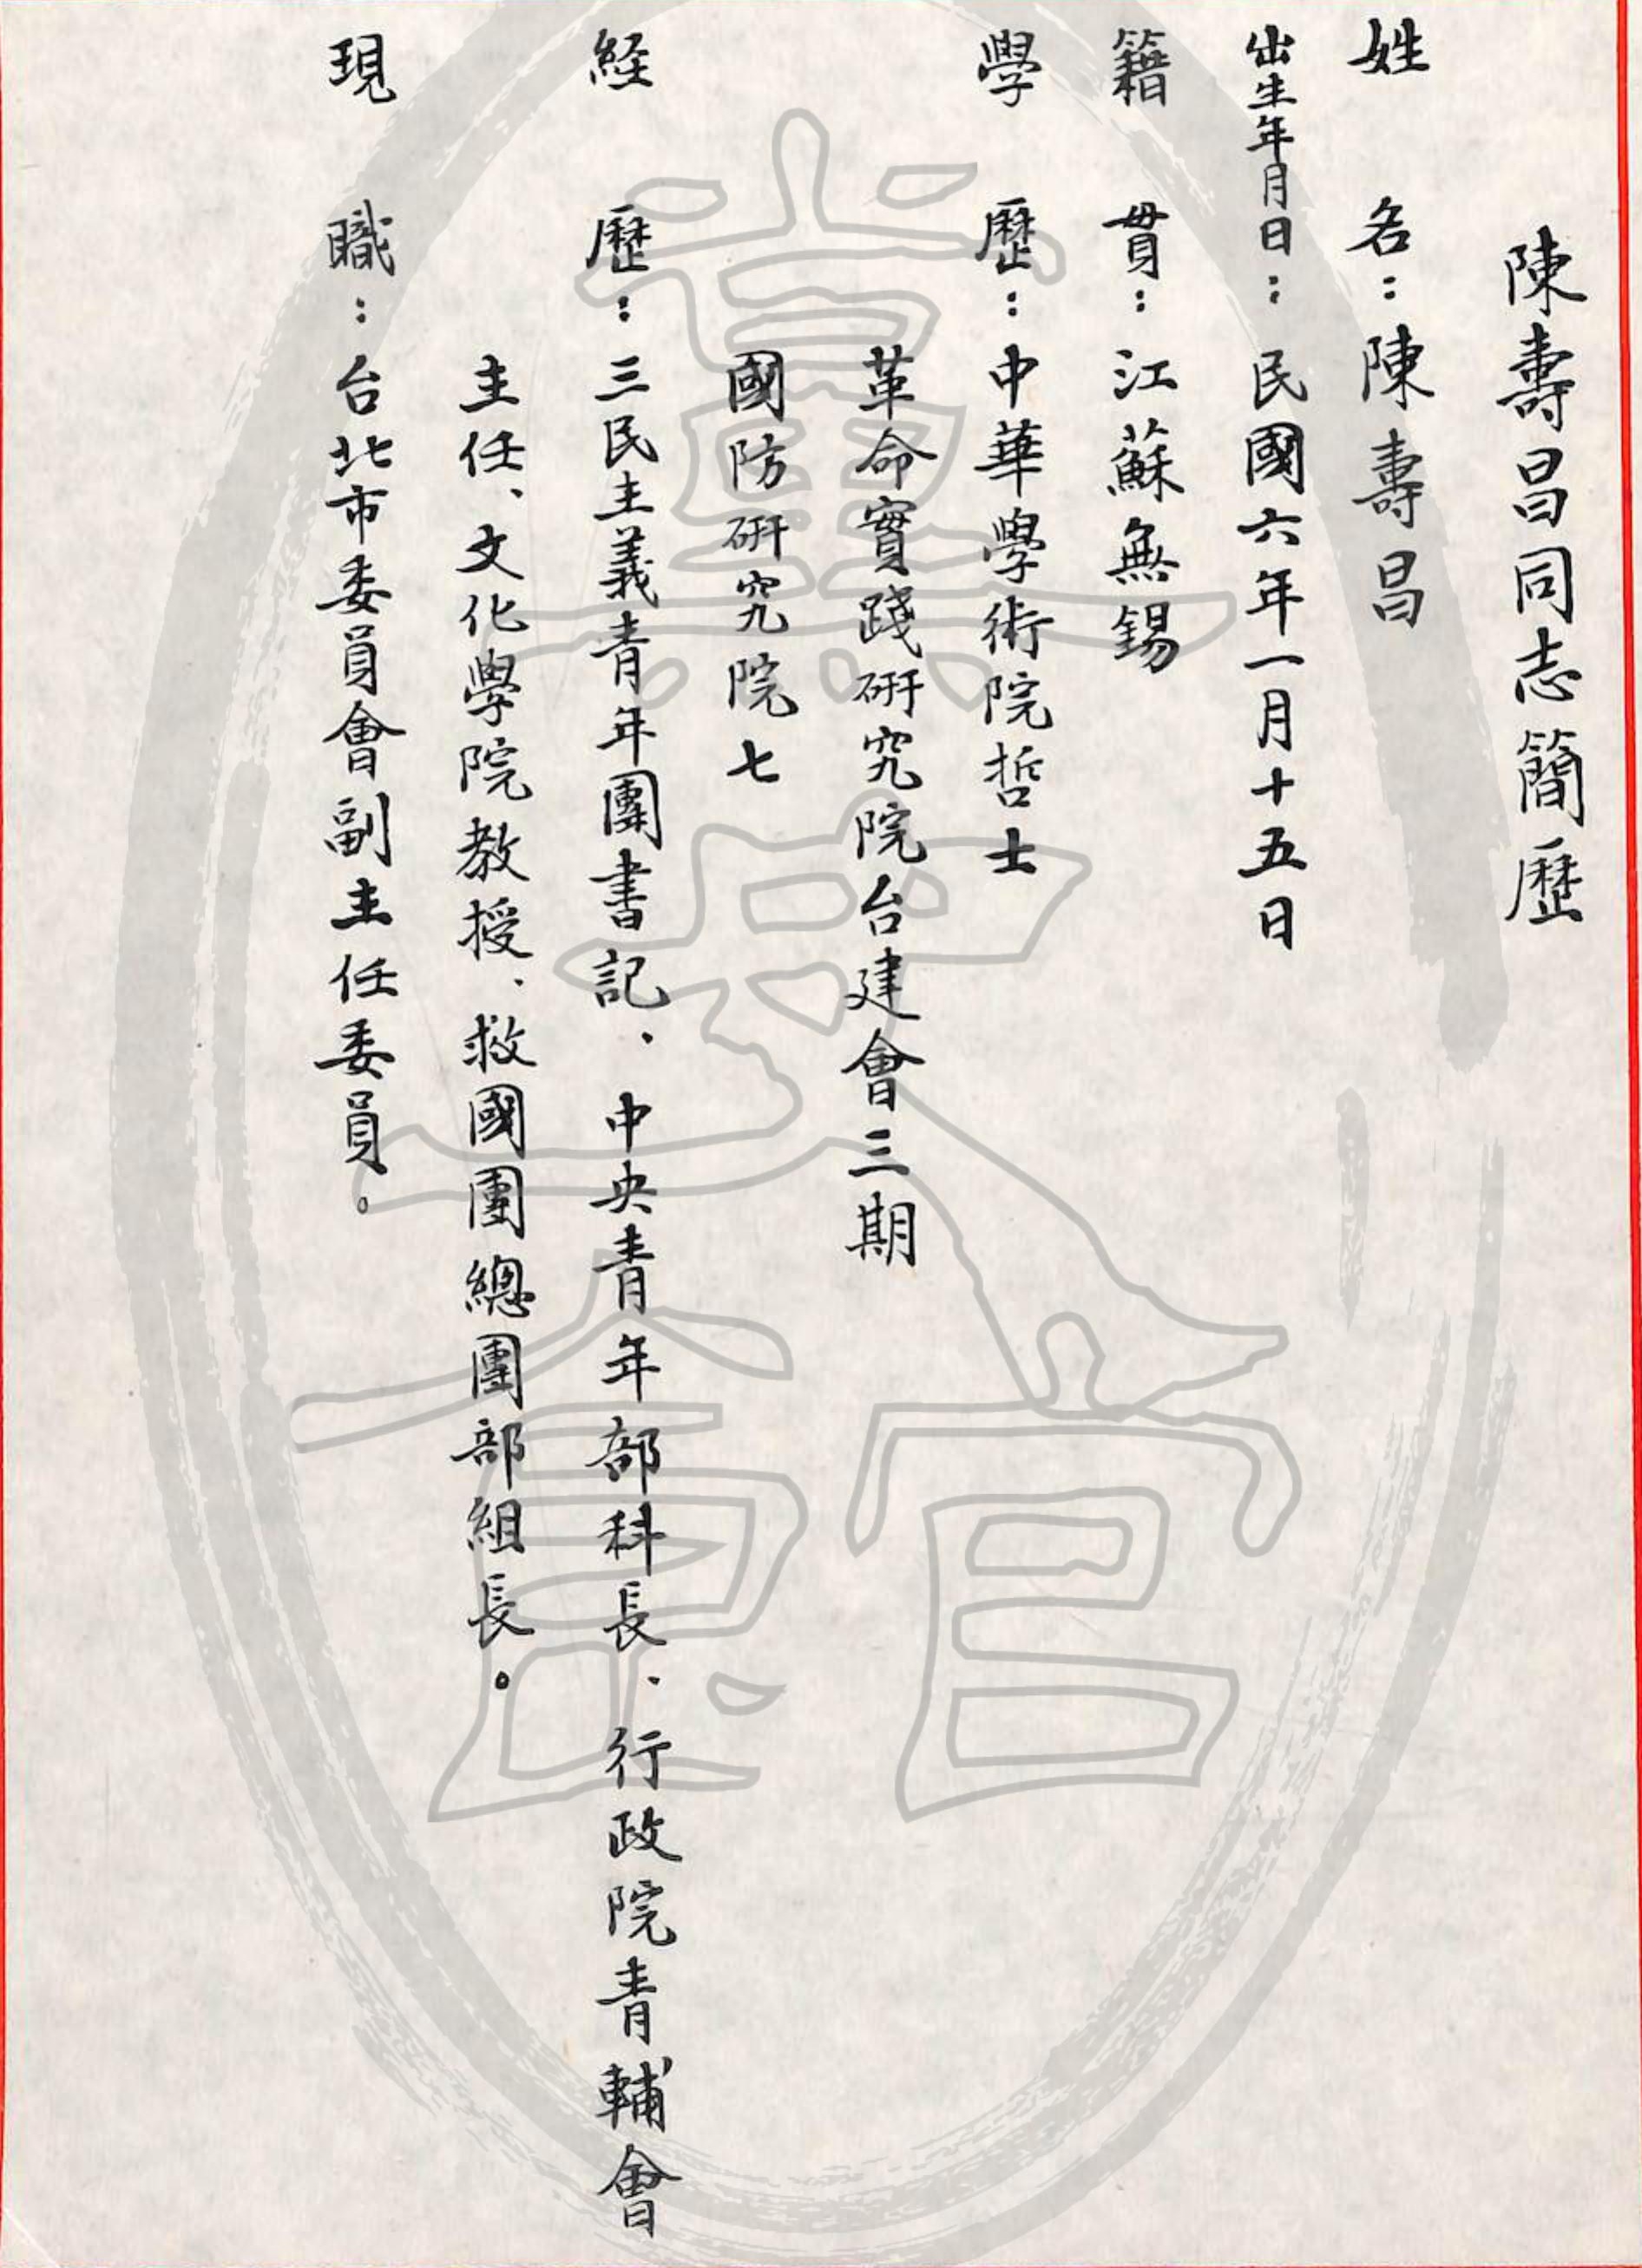 陳壽昌同志簡歷
姓名：陳壽昌
出生年月日：民國六年一月十五日
籍貫：江蘇無錫
學歷：中華學術院哲士
革命實踐研究院台建會三期
國防研究院七
経歷：三民主義青年團書記、中央青年部科長、行政院青輔會
主任、文化學院教授、救國團總團部組長。
現職：台北市委員會副主任委員。
國史館